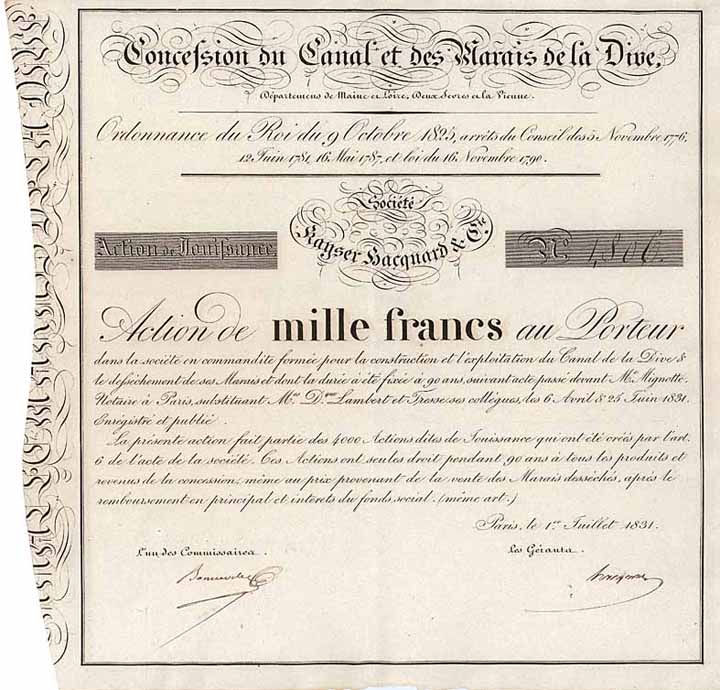 Concession du Canal et des Marais de la Dive,
Départemens de Maine et Loire, Deux Sevres et la Vienne.
Ordonnance du Roi du 9 Octobre 1825, arrêts du Conseil des 5 Novembre 1776,
12 Juin 1781, 16 Mai 1787, et loi du 16 Novembre 1790.
Société
Kayser Hacquard & Cie
Action de Jouissance
No 1,806.
Action de mille francs au Porteur
dans la société en commandite formée pour la construction et l'exploitation du Canal de la Dive &
le dessèchement de ses Marais et dont la durée a été fixée à 90 ans, suivant acte passé devant Me Mignotte,
Notaire à Paris, substituant Mes Dque Lambert et Fresse ses collègues, les 6 Avril & 25 Juin 1831.
Enrégistré et publié.
La présente action fait partie des 4000 Actions dites de Jouissance qui ont été créés par l'art.
6 de l'acte de la société. Ces Actions ont seules droit pendant 90 ans à tous les produits et
revenus de la concession, même au prix provenant de la vente des Marais desséchés, après le
remboursement en principal et intérêts du fonds social. (même art.)
Paris, le 1er Juillet 1831.
L'un des Commissaires.
Les Gérants.